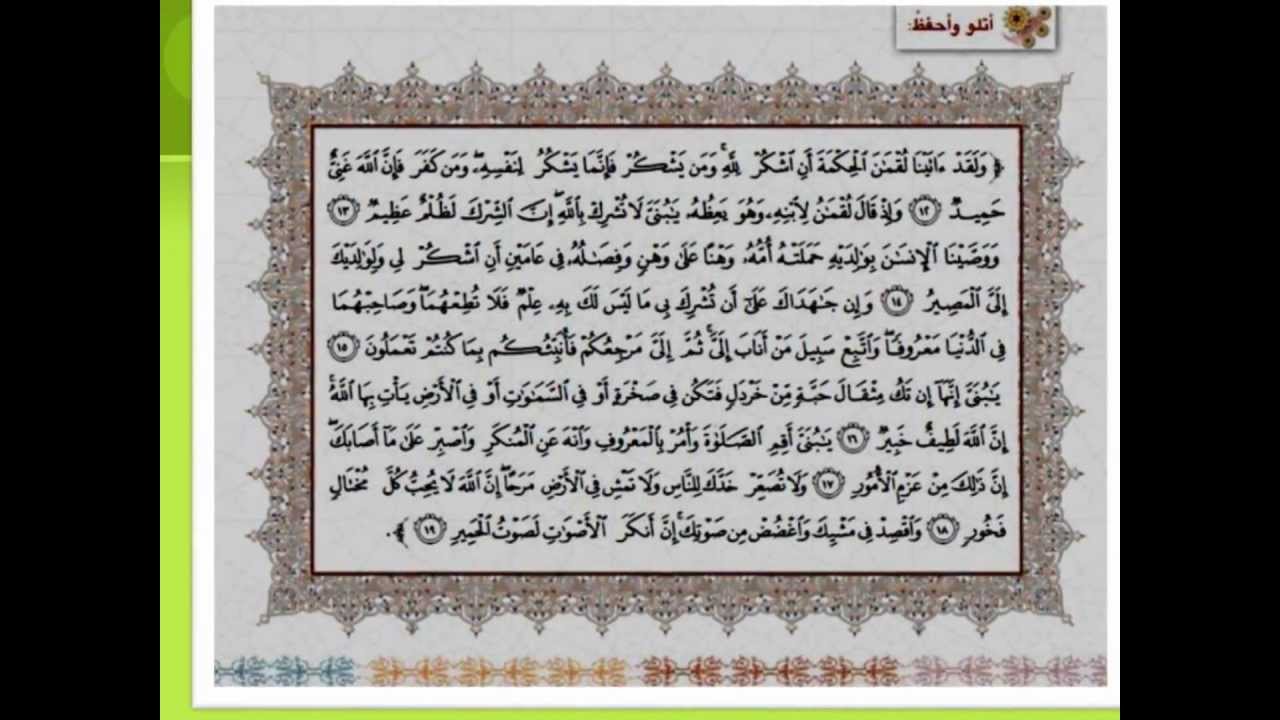 أتلو وأحفظ:
﴿ وَلَقَدْ ءَاتَيْنَا لُقْمَٰنَ الْحِكْمَةَ أَنِ اشْكُرْ لِلَّهِ ۚ وَمَن يَشْكُرْ فَإِنَّمَا يَشْكُرُ لِنَفْسِهِ ۖ وَمَن كَفَرَ فَإِنَّ اللَّهَ غَنِيٌّ
حَمِيدٌ ١٢ وَإِذْ قَالَ لُقْمَٰنُ لِابْنِهِ وَهُوَ يَعِظُهُ يَٰبُنَيَّ لَا تُشْرِكْ بِاللَّهِ ۖ إِنَّ الشِّرْكَ لَظُلْمٌ عَظِيمٌ ١٣
وَوَصَّيْنَا الْإِنسَٰنَ بِوَٰلِدَيْهِ حَمَلَتْهُ أُمُّهُ وَهْنًا عَلَىٰ وَهْنٍ وَفِصَٰلُهُ فِي عَامَيْنِ أَنِ اشْكُرْ لِي وَلِوَٰلِدَيْكَ
إِلَيَّ الْمَصِيرُ ١٤ وَإِن جَٰهَدَاكَ عَلَىٰ أَن تُشْرِكَ بِي مَا لَيْسَ لَكَ بِهِ عِلْمٌ فَلَا تُطِعْهُمَا ۖ وَصَاحِبْهُمَا
فِي الدُّنْيَا مَعْرُوفًا ۖ وَاتَّبِعْ سَبِيلَ مَنْ أَنَابَ إِلَيَّ ۚ ثُمَّ إِلَيَّ مَرْجِعُكُمْ فَأُنَبِّئُكُم بِمَا كُنتُمْ تَعْمَلُونَ ١٥
يَٰبُنَيَّ إِنَّهَا إِن تَكُ مِثْقَالَ حَبَّةٍ مِّنْ خَرْدَلٍ فَتَكُن فِي صَخْرَةٍ أَوْ فِي السَّمَٰوَٰتِ أَوْ فِي الْأَرْضِ يَأْتِ بِهَا اللَّهُ ۚ
إِنَّ اللَّهَ لَطِيفٌ خَبِيرٌ ١٦ يَٰبُنَيَّ أَقِمِ الصَّلَوٰةَ وَأْمُرْ بِالْمَعْرُوفِ وَانْهَ عَنِ الْمُنكَرِ وَاصْبِرْ عَلَىٰ مَا أَصَابَكَ ۖ
إِنَّ ذَٰلِكَ مِنْ عَزْمِ الْأُمُورِ ١٧ وَلَا تُصَعِّرْ خَدَّكَ لِلنَّاسِ وَلَا تَمْشِ فِي الْأَرْضِ مَرَحًا ۖ إِنَّ اللَّهَ لَا يُحِبُّ كُلَّ مُخْتَالٍ
فَخُورٍ ١٨ وَاقْصِدْ فِي مَشْيِكَ وَاغْضُضْ مِن صَوْتِكَ ۚ إِنَّ أَنكَرَ الْأَصْوَٰتِ لَصَوْتُ الْحَمِيرِ ١٩ ﴾.